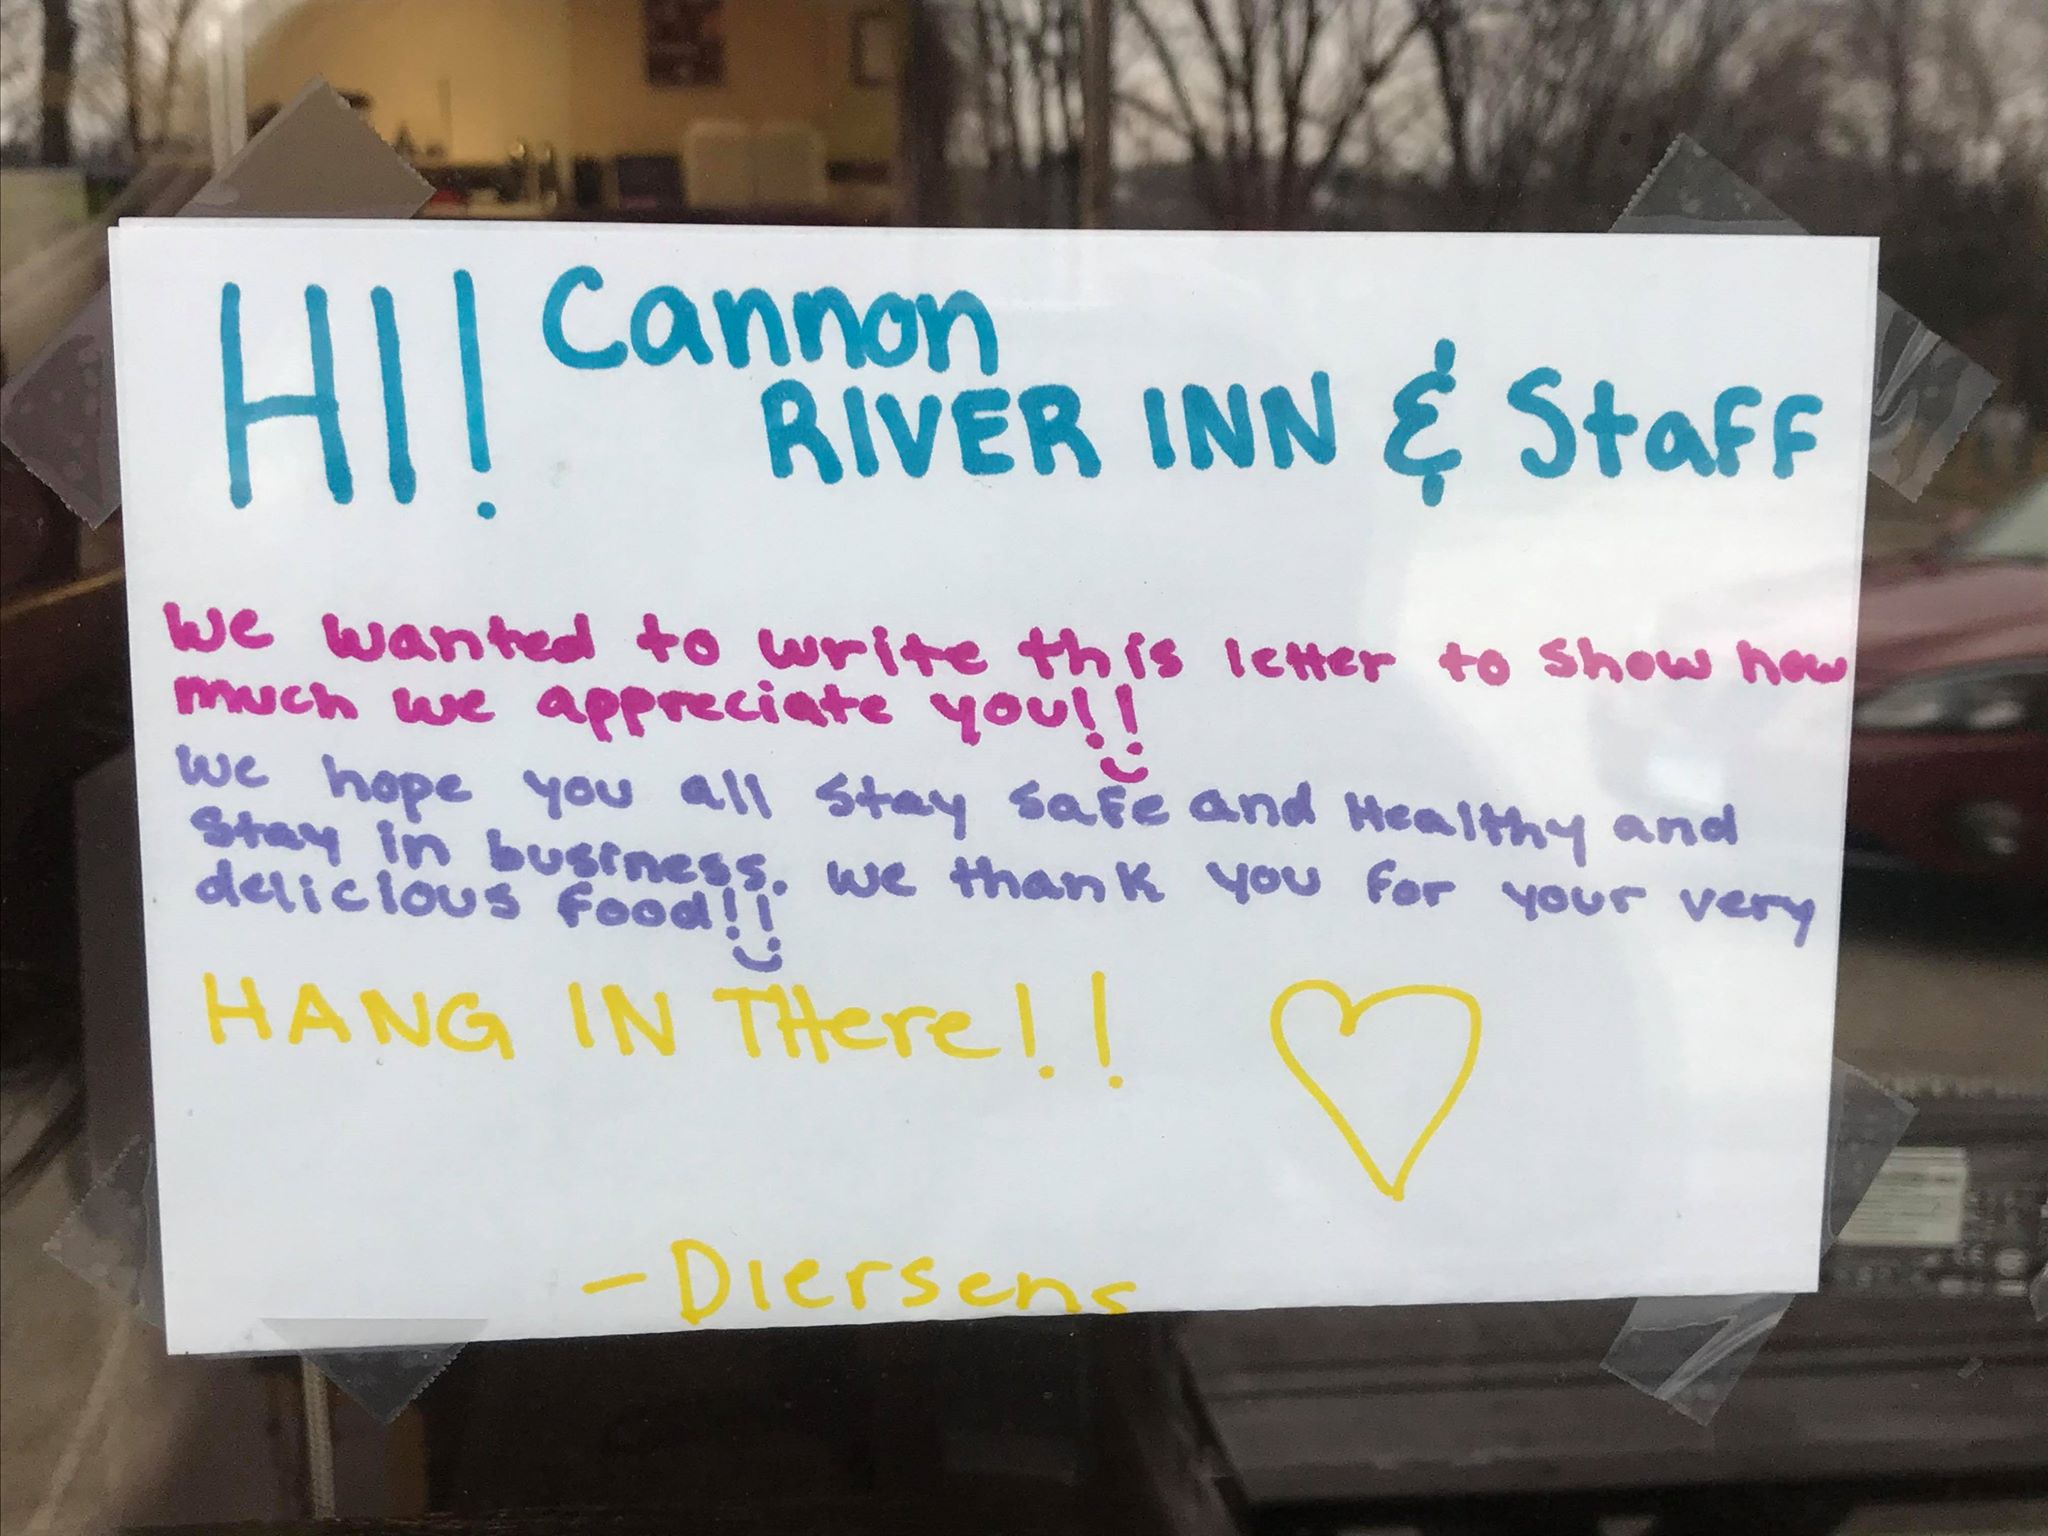 HI! Cannon
RIVER INN & Staff
We wanted to write this letter to show how
much we appreciate you!!
We hope you all stay safe and Healthy and
stay in business. We thank you for your very
delicious food!!
HANG IN THere!!
- Diersens